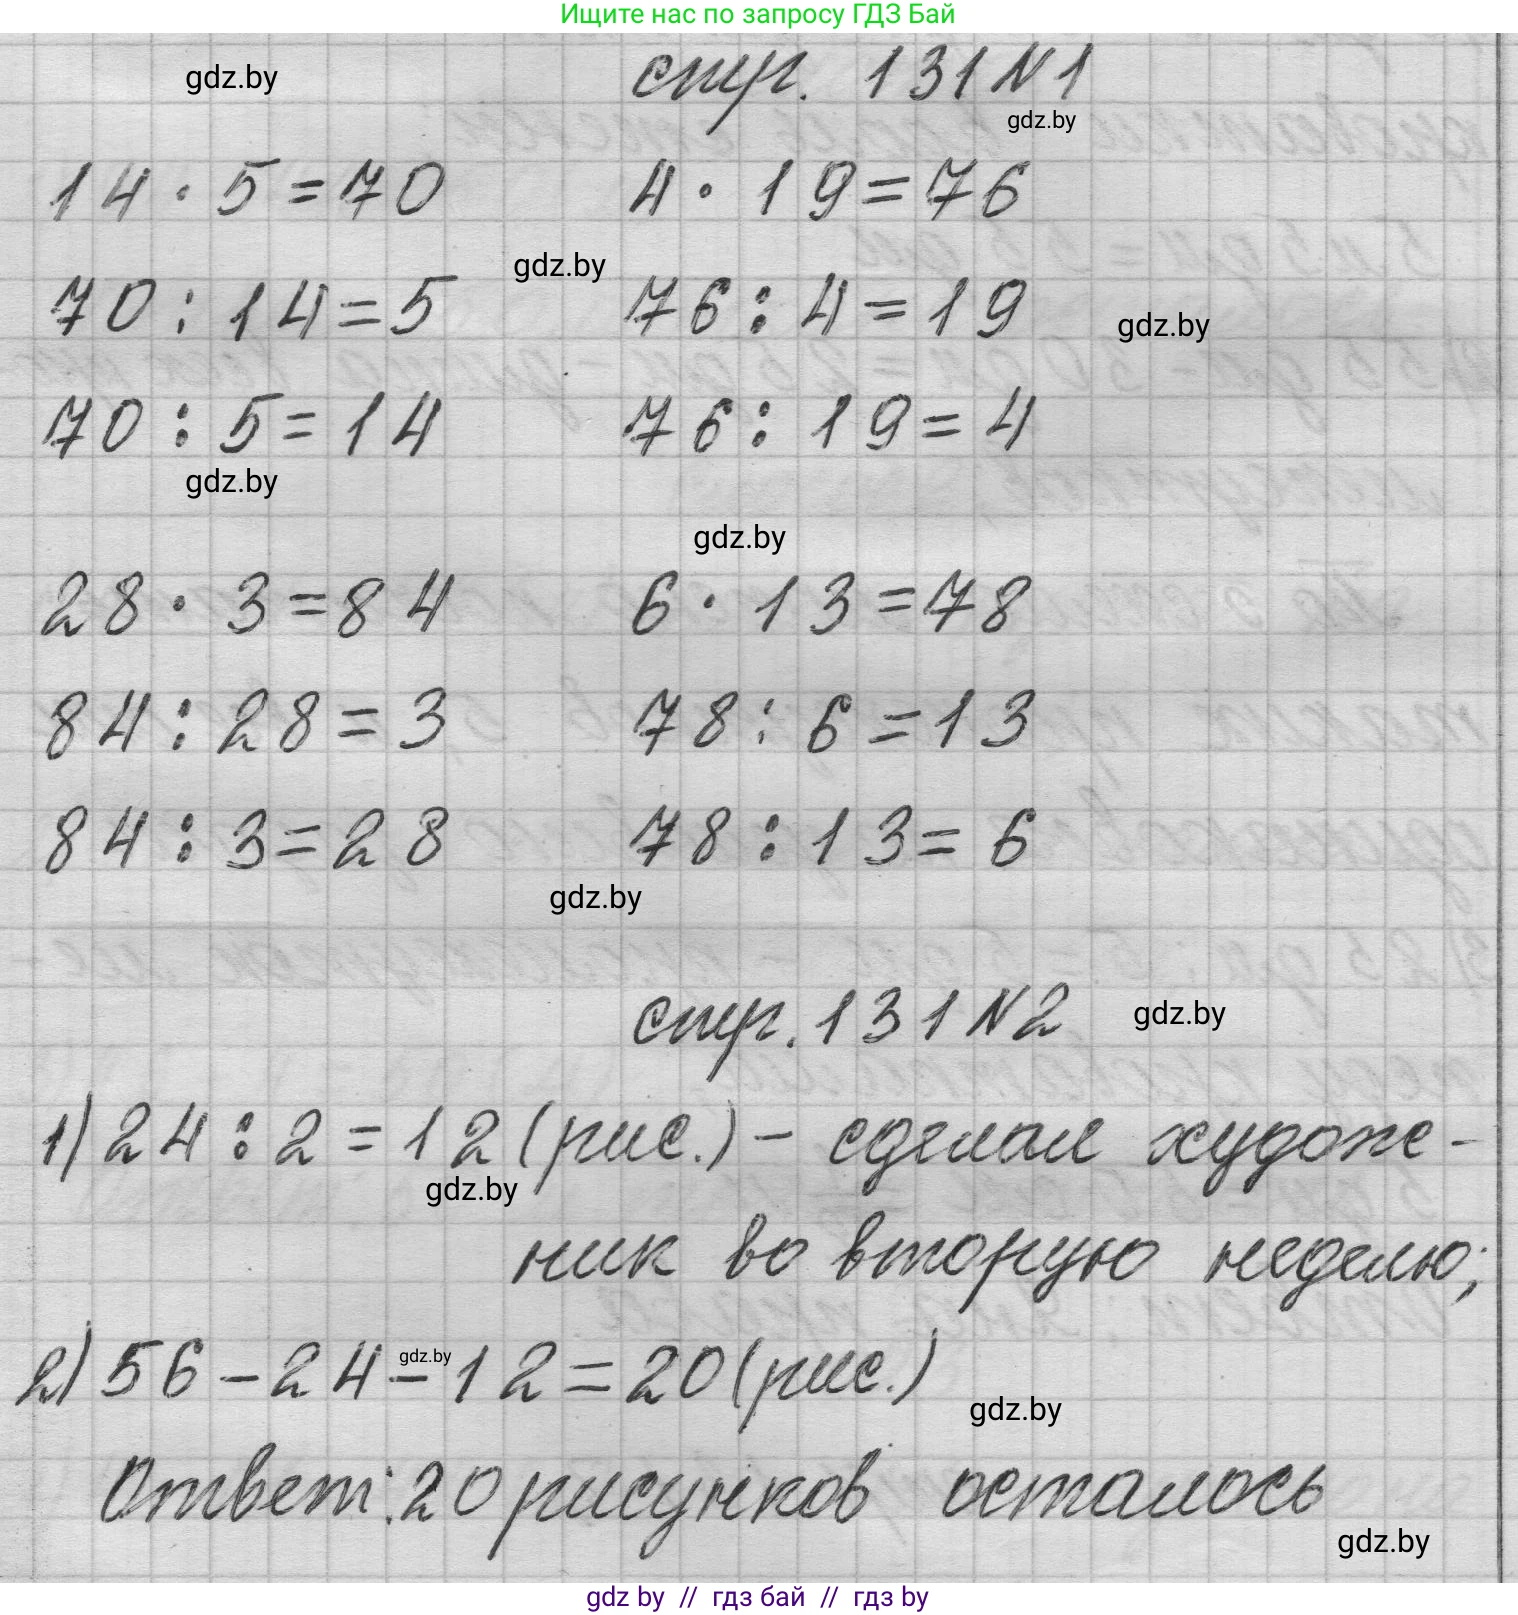 Ищите нас по запросу ГДЗ Бай
gdz.by стр. 131 N 1
gdz.by
14 · 5 = 70 4 · 19 = 76
gdz.by
70 : 14 = 5 76 : 4 = 19 gdz.by
70 : 5 = 14 76 : 19 = 4
gdz.by
gdz.by
28 · 3 = 84 6 · 13 = 78
84 : 28 = 3 78 : 6 = 13
84 : 3 = 28 78 : 13 = 6
gdz.by
стр. 131 N 2 gdz.by
1) 24 : 2 = 12 (рис.) – сделал худож-
gdz.by
ник во вторую неделю;
2) 56 – 24 – 12 = 20 (рис.)
gdz.by
gdz.by
Ответ: 20 рисунков осталось
gdz.by
gdz by // гдз бай // гдз by